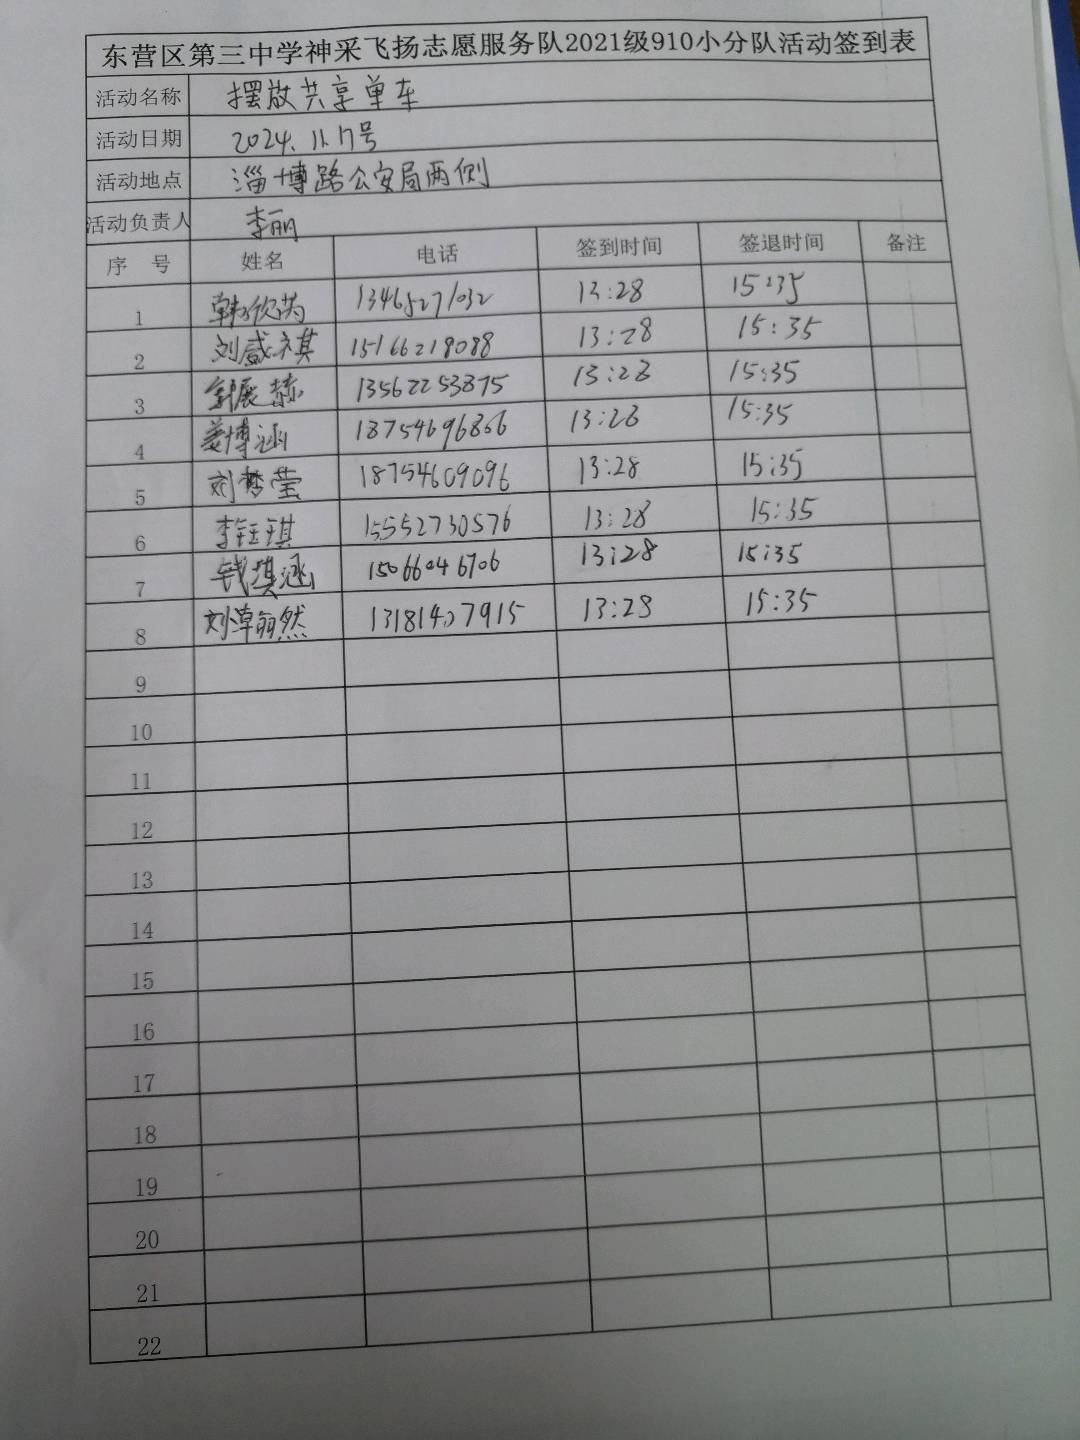 东营区第三中学神采飞扬志愿服务队2021级910小分队活动签到表
活动名称 摆放共享单车
活动日期 2024.11.17号
活动地点 淄博路公安局两侧
活动负责人 李丽
序 号 姓名 电话 签到时间 签退时间 备注
1 韩欣芮 13465271032 13:28 15:35
2 刘盛祺 15166218088 13:28 15:35
3 13562253875 13:28 15:35
4 姜博涵 18754696866 13:28 15:35
5 刘梦莹 18754609096 13:28 15:35
6 李钰琪 15552730576 13:28 15:35
7 钱淇涵 15066046706 13:28 15:35
8 13:28 15:35
9
10
11
12
13
14
15
16
17
18
19
20
21
22